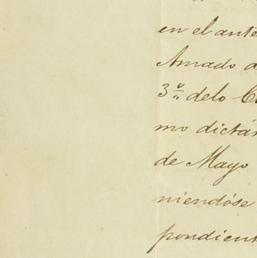 en el ante
Amado d
3º delo C
mo dictám
de Mayo
niendóse
pondient